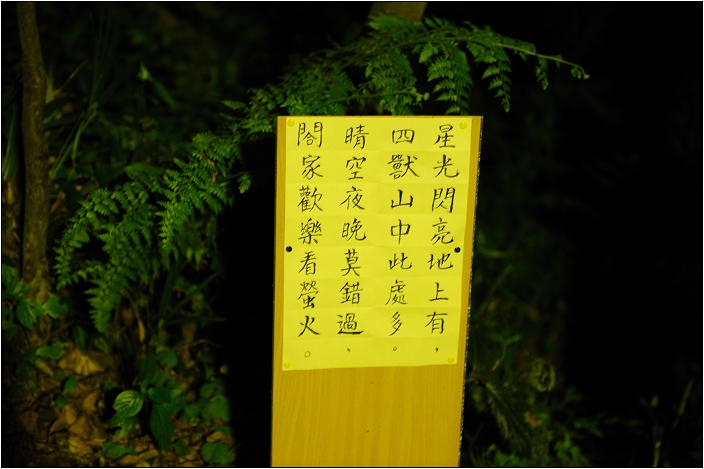 星光閃亮地上有，
四獸山中此處多。
晴空夜晚莫錯過，
閤家歡樂看螢火。